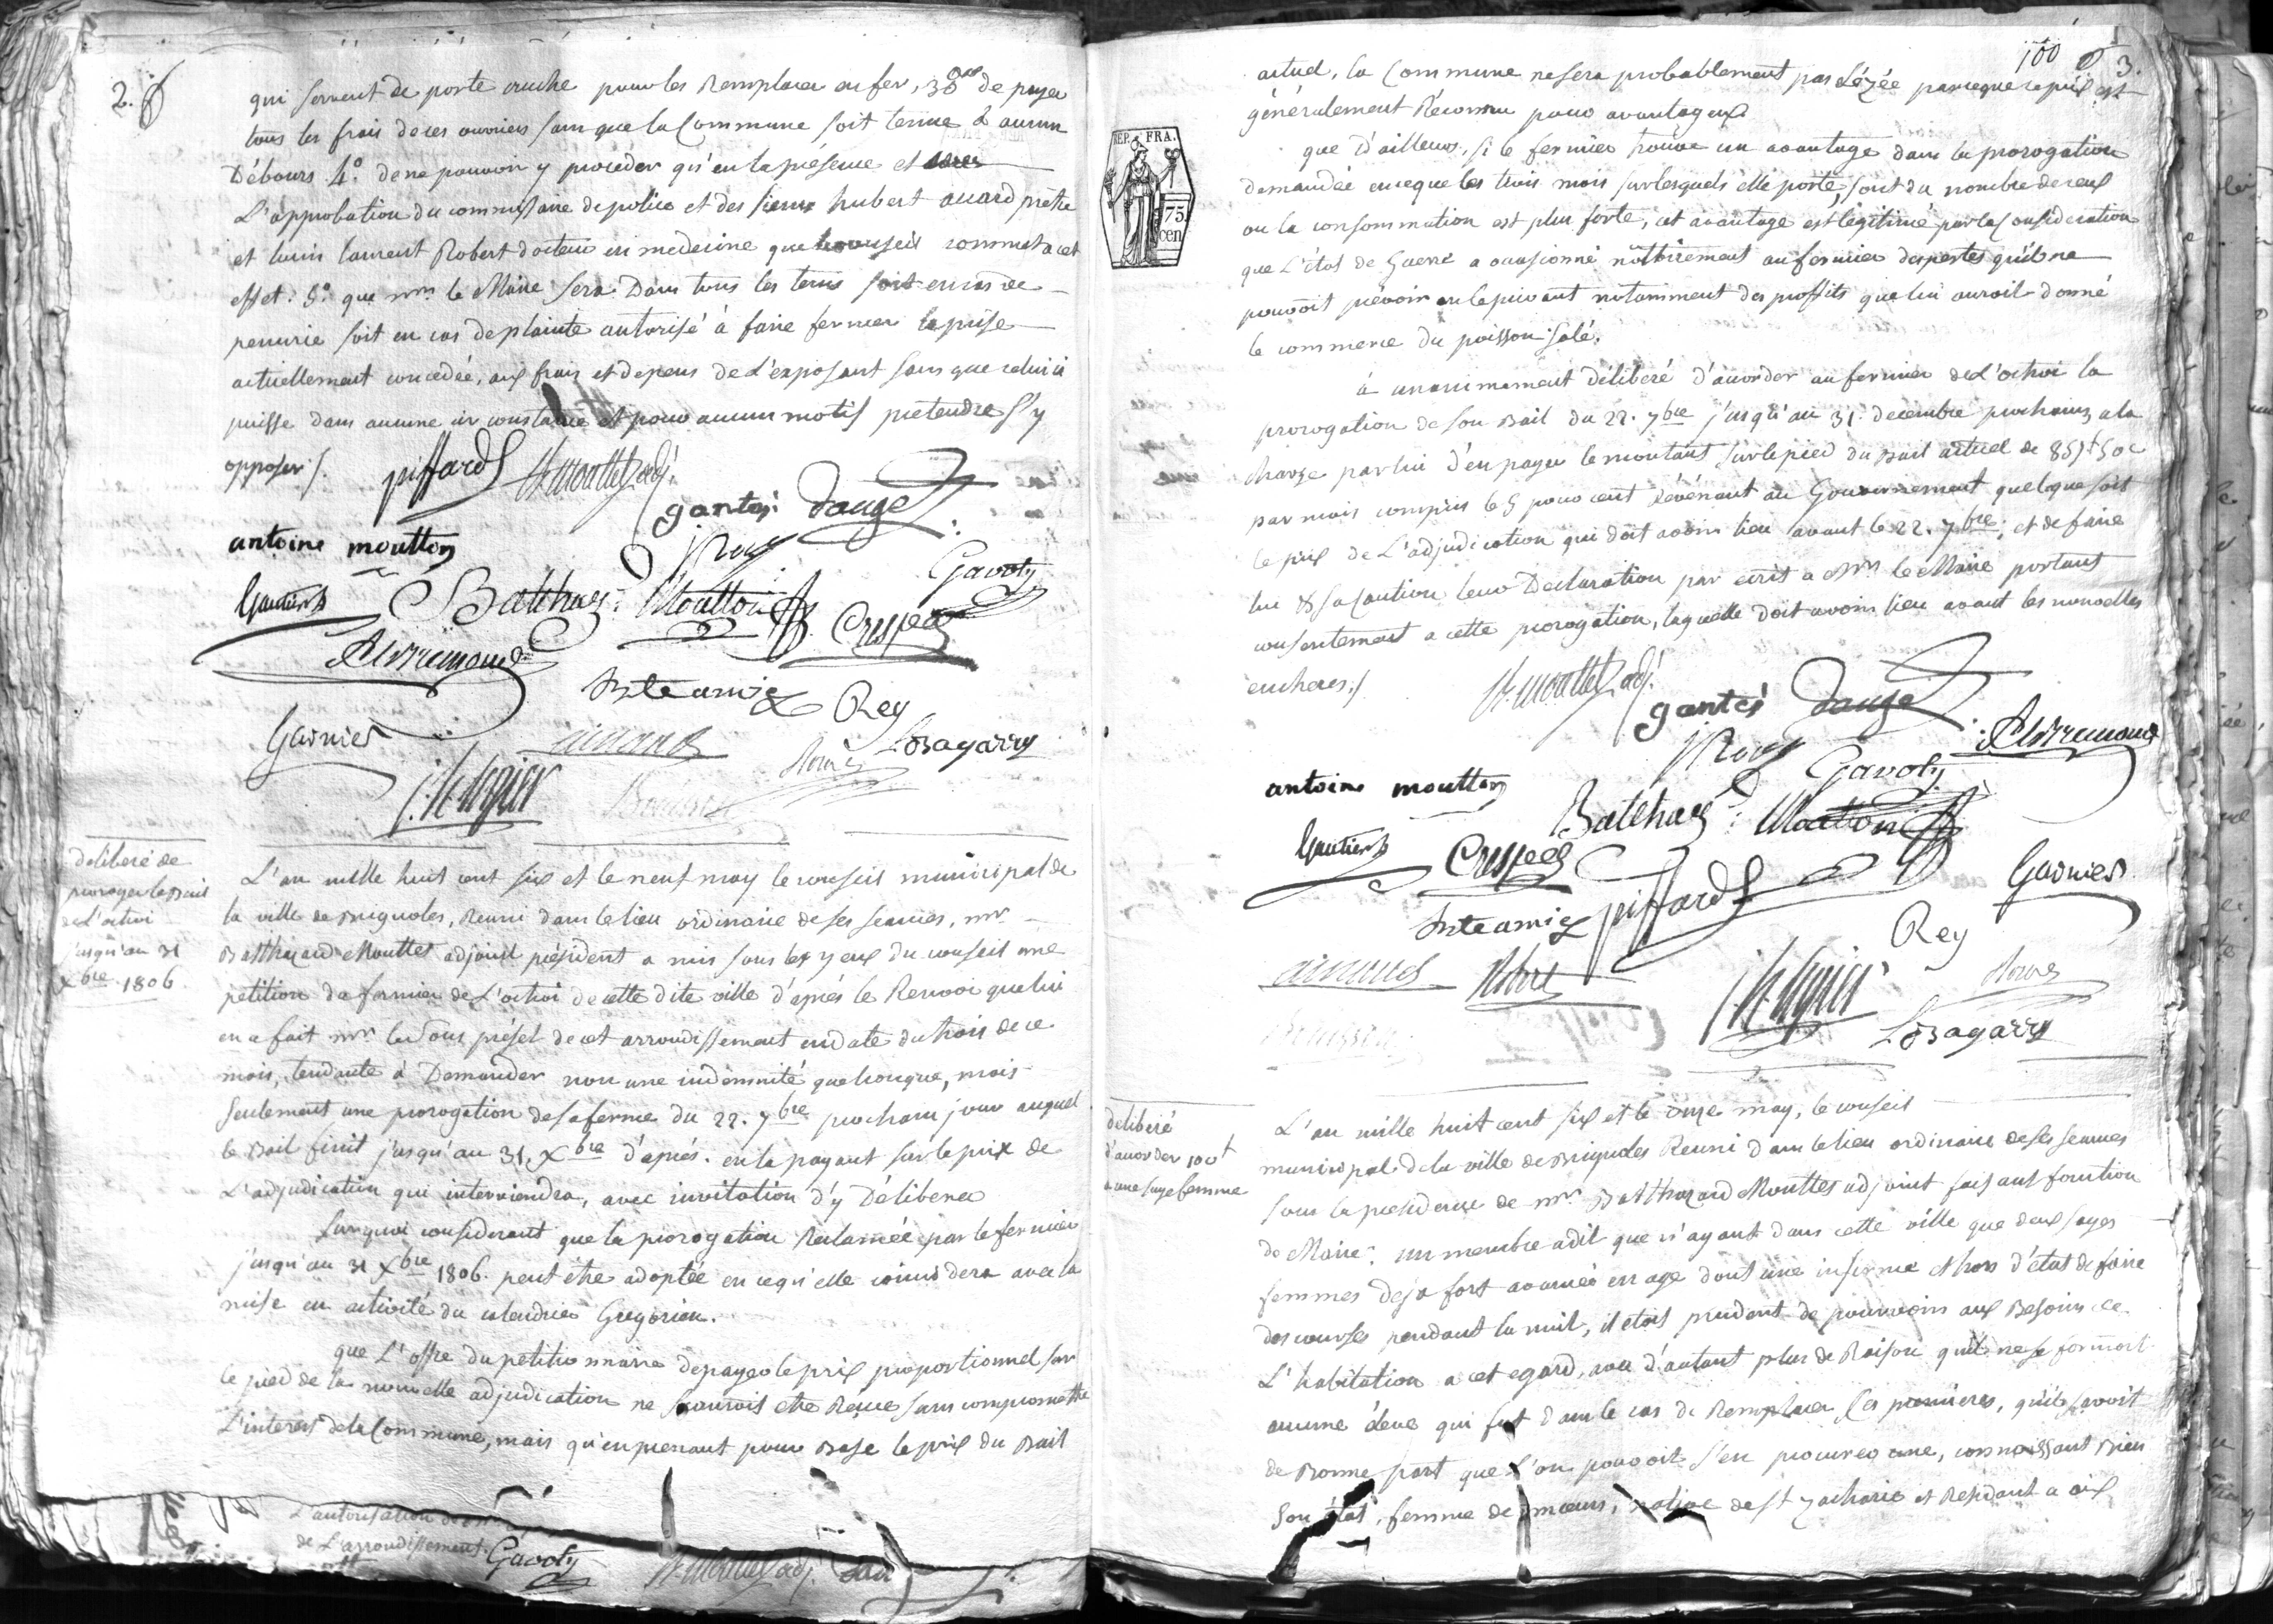 2.
qui servent de porte cruche pour les Remplacer en fer, 3° de payer
tous les frais de ces ouvriers sans que la Commune soit tenue à aucun
Débours 4.° de ne pouvoir y proceder qu'en la présence et
L'approbation du commissaire de police et des sieurs hubert prêtre
et laurent Robert docteur en medecine que le conseil commet a cet
effet. 5.° que mr. le Maire sera Dans tous les tems soit en cas de
penurie soit en cas de plainte autorisé à faire fermer la prise
actuellement concedée, aux frais et depens de L'exposant sans que celui ci
puisse dans aucune circonstance et pour aucun motif pretendre s'y
opposer ./.
piffard Bt. mouttet adj.
gantés dauge
antoine moutton
Jh Roux
Gavoty
Gautier
Balthazd. Moutton
Crespel
Rey
Garnier
LBagarry
deliberé de
proroger le Bail
de L'octroi
jusqu'au 31
Xbre 1806
L'an mille huit cent six et le neuf may le conseil municipal de
la ville de Brignoles, Reuni dans le lieu ordinaire de ses seances, mr.
Balthazard Mouttet adjoint président a mis sous les yeux du conseil une
petition du fermier de L'octroi de cette dite ville d'après le Renvoi que lui
en a fait mr. le Sous préfet de cet arrondissement en date du trois de ce
mois, tendante à Demander non une indemnité quelconque, mais
seulement une prorogation de sa ferme du 22. 7bre prochain jour auquel
le Bail finit jusqu'au 31. Xbre d'après. en la payant sur le prix de
L'adjudication qui interviendra, avec invitation d'y Déliberer
Sur quoi considerant que la prorogation Reclamée par le fermier
jusqu'au 31 Xbre 1806. peut être adoptée en ce qu'elle coincidera avec la
mise en activité du calendrier Gregorien.
que L'offre du petitionnaire de payer le prix proportionnel sur
le pied de la nouvelle adjudication ne sauroit etre Reçue sans compromettre
L'interest de la Commune, mais qu'en prenant pour Base le prix du Bail
L'autorisation
de L'arrondissement.
Gavoty
Bt. mouttet adj.
100
3.
actuel, la Commune ne sera probablement pas Lézée parce que ce prix est
généralement Réconnu pour avantageux
REP. FRA.
75
cen
que d'ailleurs, si le fermier trouve un avantage dans la prorogation
demandée en ce que les trois mois sur lesquels elle porte, sont du nombre de ceux
ou la consommation est plus forte, cet avantage est légitimé par la Consideration
que L'état de Guerre a occasionné nottoirement au fermier des pertes qu'il ne
pouvoit prévoir en le privant notamment des proffits que lui auroit donné
le commerce du poisson salé.
à unanimement déliberé d'accorder au fermier de L'octroi la
prorogation de son Bail du 22. 7bre jusqu'au 31. decembre prochain, a la
charge par lui d'en payer le montant sur le pied du Bail actuel de 857f 50c
par mois compris le 5 pour cent Révénant au Gouvernement quelque soit
le prix de L'adjudication qui doit avoir lieu avant le 22. 7bre, et de faire
lui & sa Caution leur Declaration par ecrit a Mr. le Maire portant
consentement a cette prorogation, laquelle doit avoir lieu avant les nouvelles
encheres ./
Bt. mouttet adj.
gantés dauge
Jh Roux
Gavoty
antoine moutton
Balthazd. Moutton
Gautier
Crespel
piffard
Garnier
Rey
LBagarry
deliberé
d'accorder 100f
a une sage femme
L'an mille huit cent six et le onze may, le conseil
municipal de la ville de Brignoles Reuni dans le lieu ordinaire de ses seances
sous la presidence de mr. Balthazard Mouttet adjoint faisant fonction
de Maire. un membre a dit que n'ayant dans cette ville que deux sages
femmes deja fort avancées en age dont une infirme et hors d'etat de faire
des courses pendant la nuit, il etoit prudent de pourvoir aux Besoins de
L'habitation a cet egard, avec d'autant plus de Raison qu'il ne se formoit
aucune éleve qui fut dans le cas de Remplacer les premieres, qu'il savoit
de Bonne part que L'on pouvoit s'en procurer une, connaissant Bien
son état, femme de mœurs, native de St. Zacharie et Residant a aix